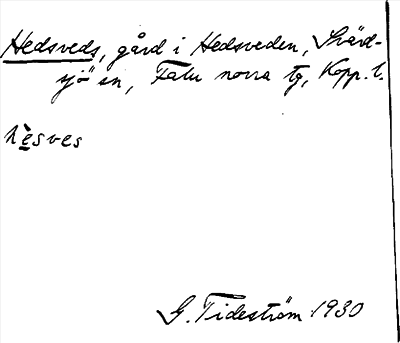 Hedsveds, gård i Hedsveden, Svärd-
sjö sn, Falu norra tg, Kopp. l.
hèsves
G. Tideström 1930